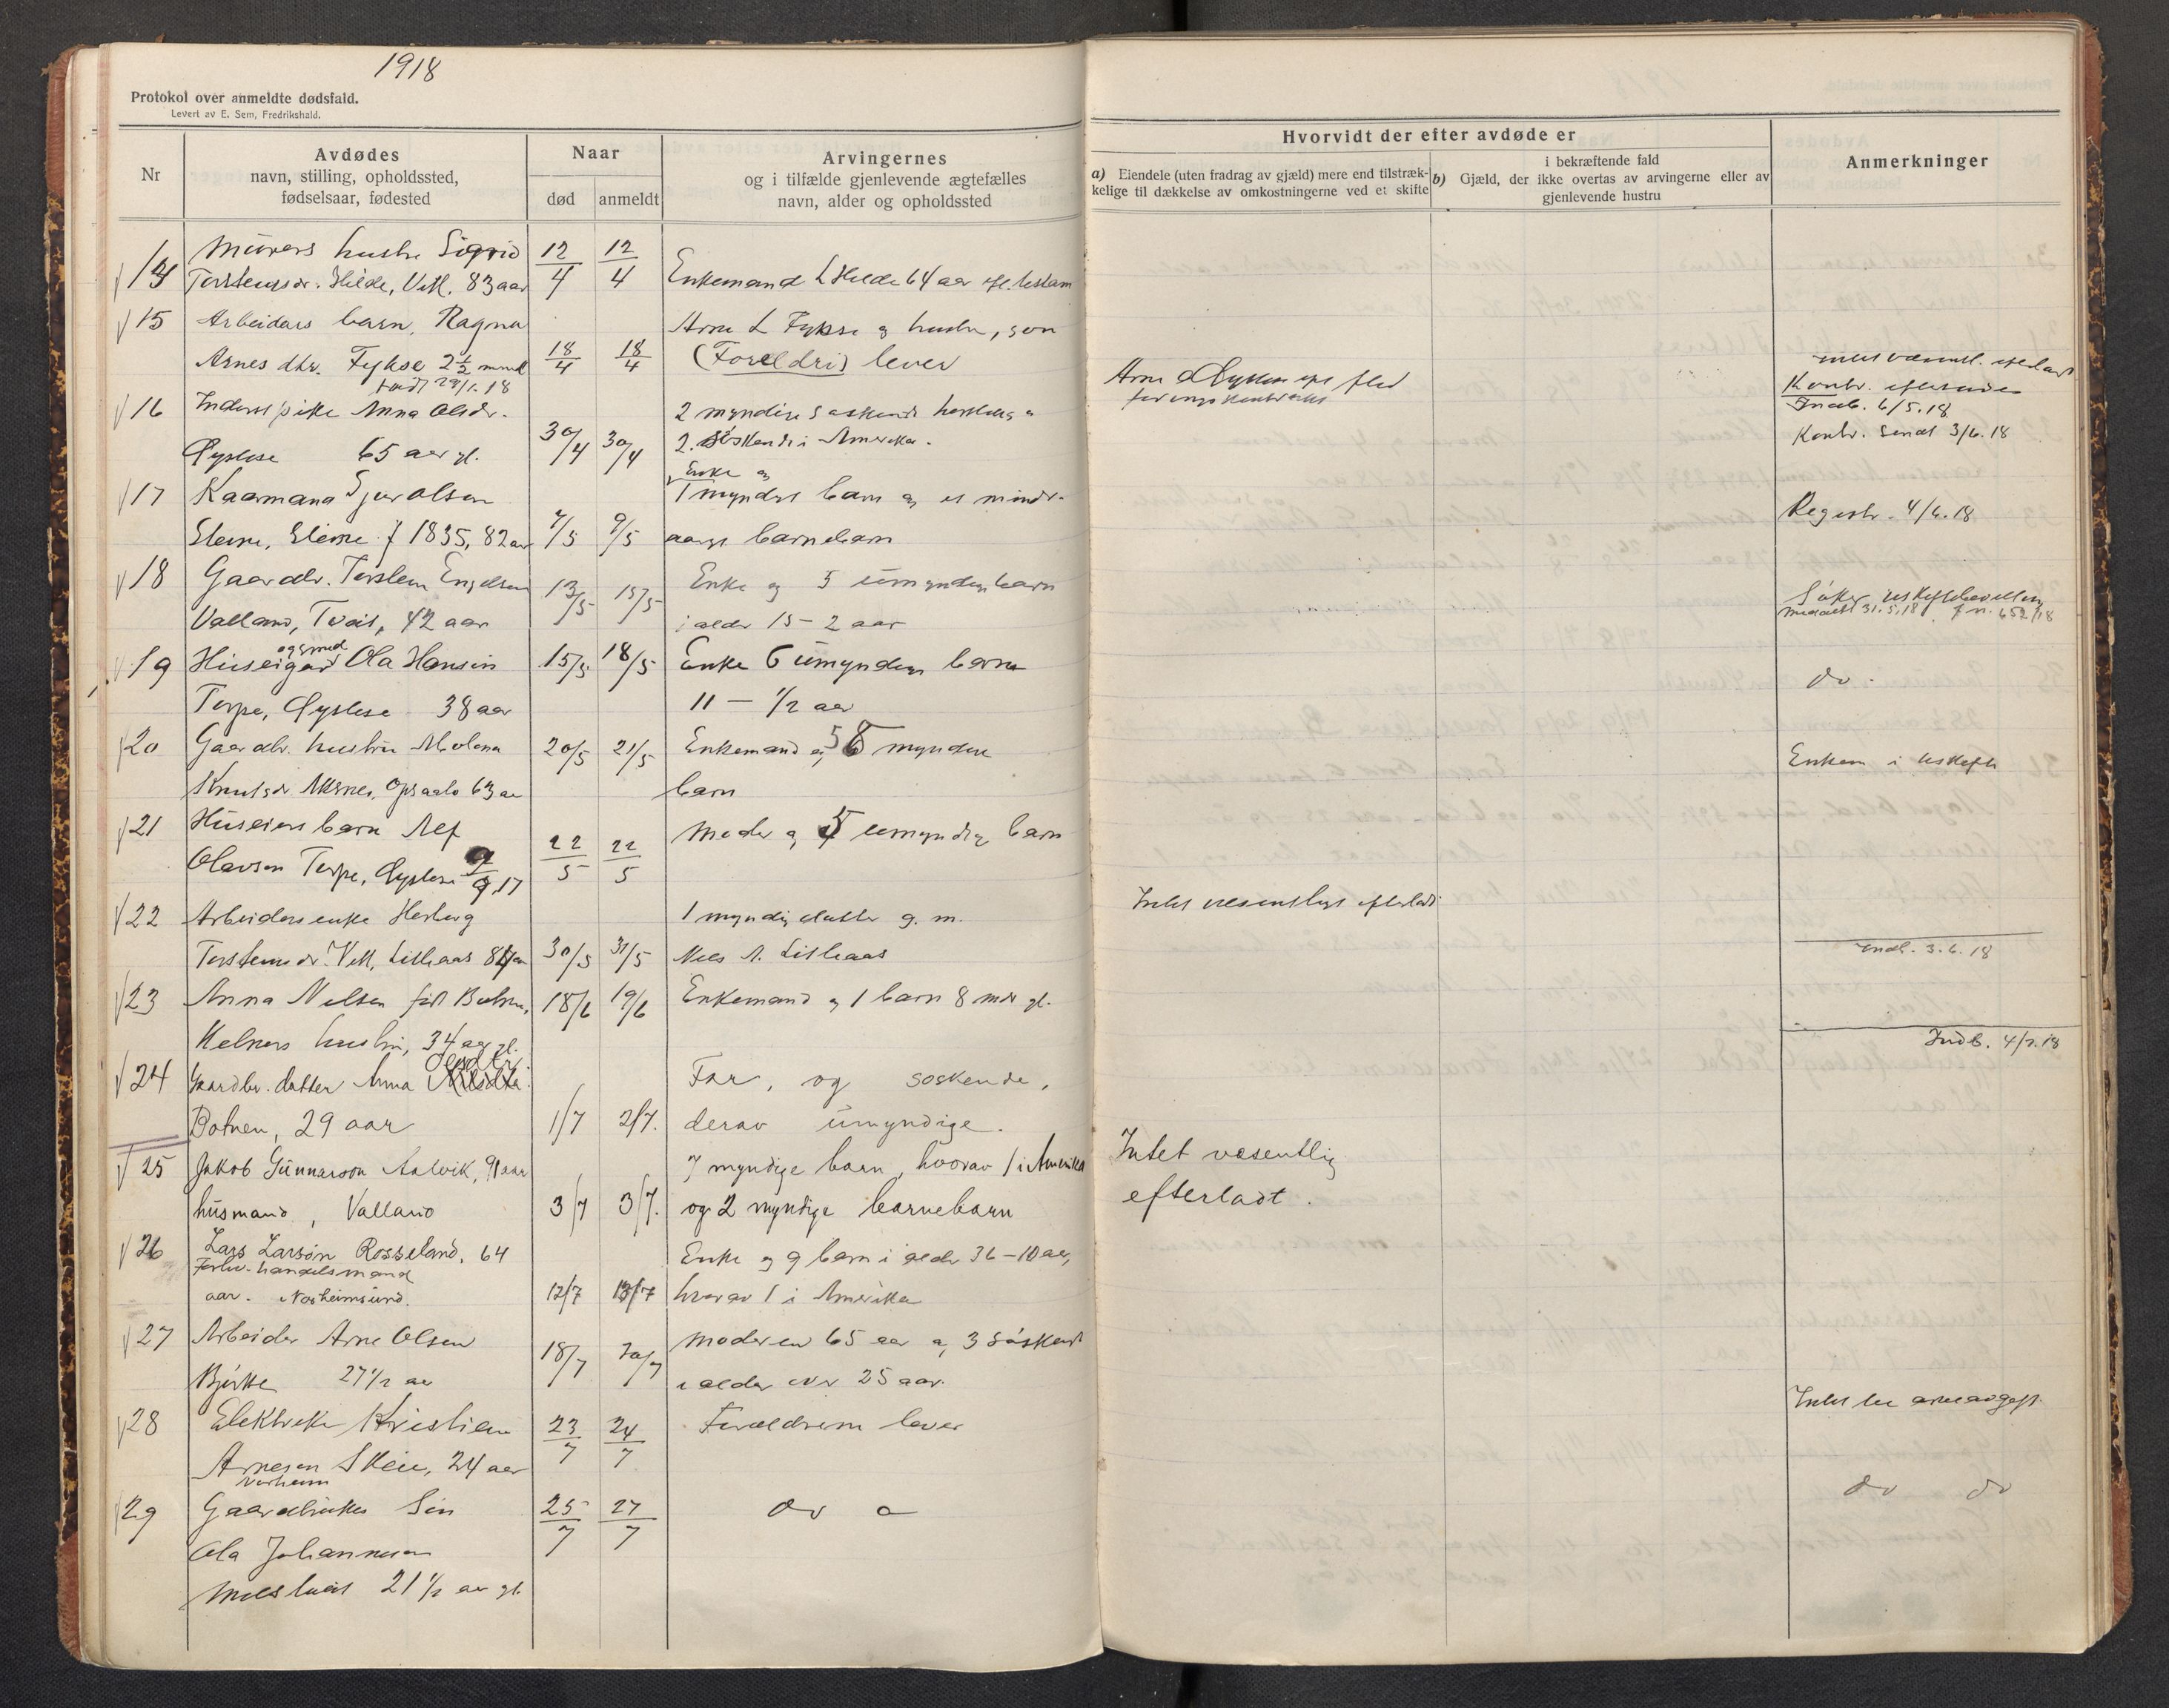 1918
Protokol over anmeldte dødsfald.
Levert av E. Sem, Fredrikshald.
Nr
Avdødes
navn, stilling, opholdssted,
fødselsaar, fødested
Naar
død
anmeldt
Arvingernes
og i tilfælde gjenlevende ægtefælles
navn, alder og opholdssted
Hvorvidt der efter avdøde er
a) Eiendele (uten fradrag av gjæld) mere end tilstræk-
kelige til dækkelse av omkostningerne ved et skifte
i bekræftende fald
b) Gjæld, der ikke overtas av arvingerne eller av
gjenlevende hustru
Anmerkninger
14 Murers hustru Sigrid 12/4 12/4
Torsteinsdr. Hilde, Vik, 83 aar Enkemand L Hilde 64 aar efl. testam
15 Arbeidars barn, Ragna Arne L Fykse og hustru, som
Arnes dtr. Fykse 2½ mnd 18/4 18/4 (Foreldri) lever
født 28/1.18
16 Inderst pike Anna Olsdr. 2 myndige søskende
Øystese 65 aar gl. 30/4 30/4 2 søskende i Amerika.
Arne
Kontr.
Indb. 6/5.18
Kontr. Sendt 3/6.18
Enke og
17 Kaarmana Sjur Olsen 1 myndig barn og et mindr-
Steine, Steine f 1835, 82 aar 7/5 9/5 aarig barnebarn
Registr. 4/6.18
18 Gaardbr. Torstein Engelsen 13/5 15/5 Enke og 5 umyndig barn
Valland, Tveit, 42 aar i alder 15 - 2 aar
Søker uskiftebevilling
meddelt 31.5.18 j. n. 652/18
og smed
19 Huseigar Ola Hansen 15/5 18/5 Enke 6 umyndig barn
Torpe, Øystese 38 aar 11 - 1/2 aar
do.
20 Gaardbr. hustru Molena 20/5 21/5 Enkemand og 5 myndige
Knutsdr Aksnes, Opsaalo 63 aar barn
Enkem i uskifte
21 Huseiers barn Alf 22/5 22/5 Moder og 5 umyndig barn
Olavson Torpe, Øystese 9/9.17
22 Arbeiders enke Herborg 1 myndig datter g. m.
Torsteinsdr. Vik, Lislaas 84 aar 30/5 31/5 Nils A. Lislaas
Intet væsentligt efterladt
Indb. 3.6.18
23 Anna Nilsen født Botnen, 18/6 19/6 Enkemand og 1 barn 8 mdr gl.
Kelners hustru, 34 aar gl.
Indb. 4/7.18
Olsdtr.
24 Gaardbr. datter Anna Far, og søskende,
Botnen, 29 aar 1/7 2/7. derav umyndige.
25 Jakob Gunnarson Aalvik, 91 aar 7 myndige barn, hvorav 1 i Amerika
husmand, Valland 3/7 3/7. og 2 myndige barnebarn
Intet væsentlig
efterladt.
26 Lars Larson Rosseland, 64 Enke og 9 barn i alder 36 - 10 aar,
Forhv. handelsmand
aar. Norheimsund. 12/7 13/7 hvorav 1 i Amerika
27 Arbeider Arne Olsen 18/7 20/7 Moderen 65 aar og 3 Søskend
Bjørke 27 1/2 aar i alder over 25 aar.
28 Elektrike Kristian 23/7 24/7 Foreldrene lever
Arnesen Skeie, 24 aar
Norheim
Intet
29 Gaardbrukes Søn 25/7 27/7 do
Ola Johannesen
21 1/2 aar gl.
do do